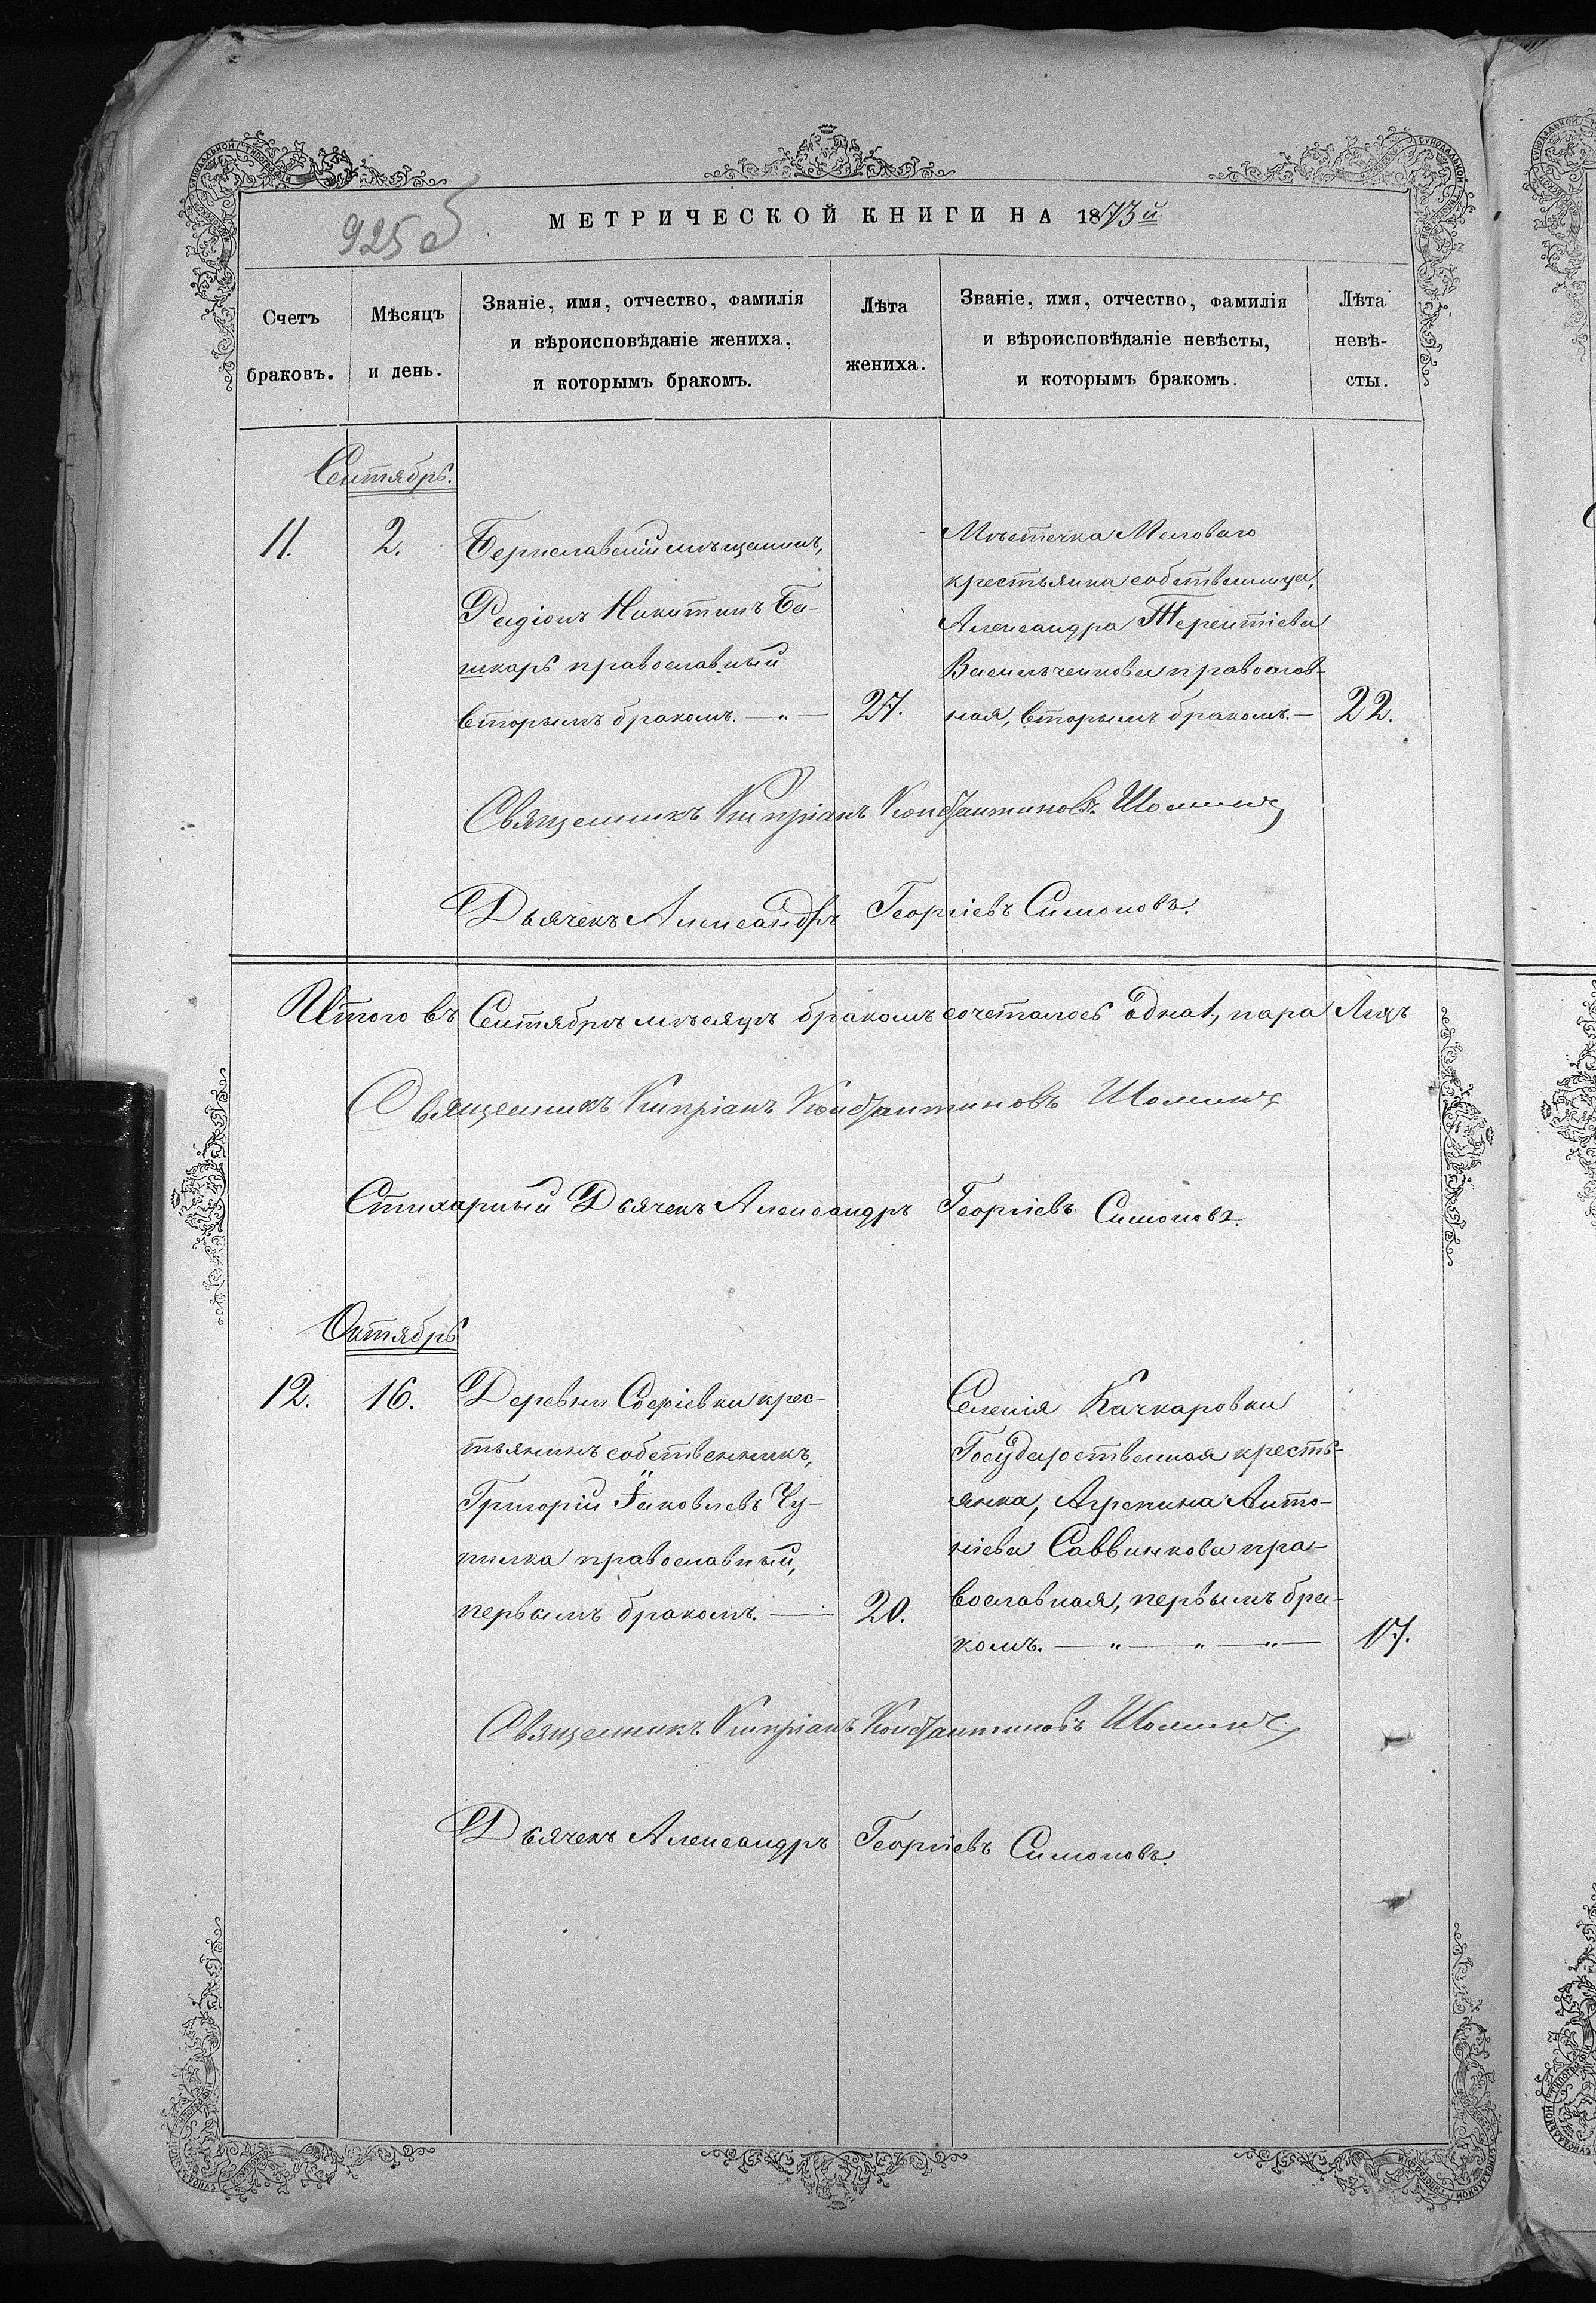 925 об
МЕТРИЧЕСКОЙ КНИГИ НА 1873й
Счетъ
браковъ.
Мѣсяцъ
и день.
Званіе, имя, отчество, фамилія
и вѣроисповѣданіе жениха,
и которымъ бракомъ.
Лѣта
жениха.
Званіе, имя, отчество, фамилія
и вѣроисповѣданіе невѣсты,
и которымъ бракомъ.
Лѣта
невѣ-
сты.
Сентябрь.
11.
2.
Бериславскій мѣщанинъ,
Радіонъ Никитинъ Ба-
шкарь православный
вторымъ бракомъ. — " —
27.
Мѣстечка Меловаго
крестьянка собственница,
Александра Терентіева
Васильченкова православ-
ная, вторымъ бракомъ. —
22.
Священникъ Кипріанъ Константиновъ
Дьячекъ Александръ Георгіевъ Симоновъ.
Итого въ Сентябрѣ мѣсяцѣ бракомъ сочеталось одна 1, пара лицъ
Священникъ Кипріанъ Константиновъ
Стихарный Дьячекъ Александръ Георгіевъ Симоновъ.
Октябрь
12.
16.
Деревни Софіевки крес-
тьянинъ собственникъ,
Григорій Іаковлевъ Чу-
пилка православный,
первымъ бракомъ. —
20.
Селенія Качкаровки
Государственная кресть-
янка, Агрепина Анто-
ніева Саввинкова пра-
вославная, первымъ бра-
комъ. — " — " — " —
17.
Священникъ Кипріанъ Константиновъ
Дьячекъ Александръ Георгіевъ Симоновъ.